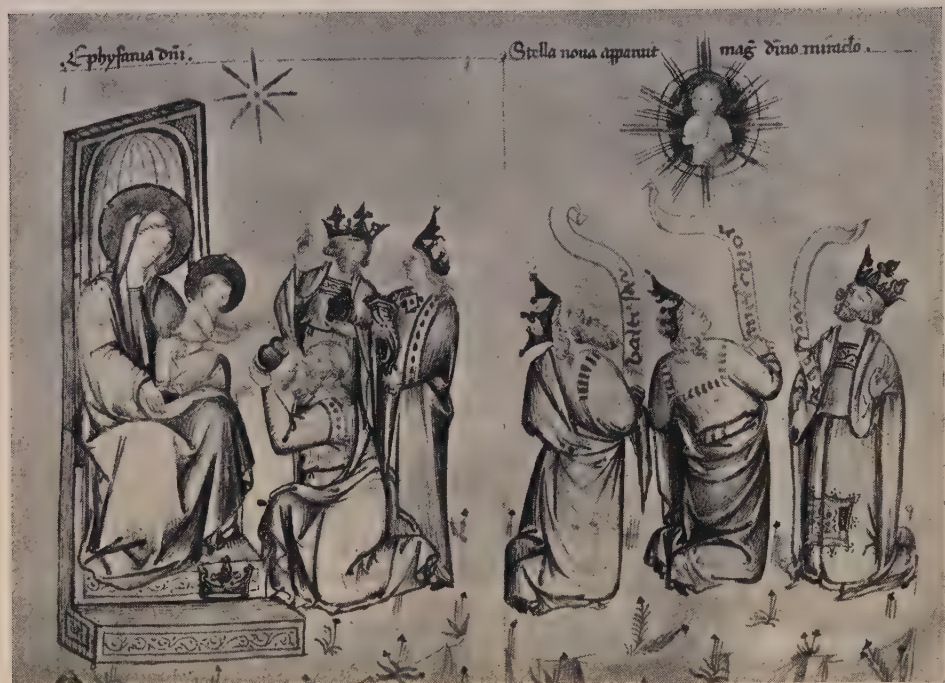 Ephyfania dñi.
Stella noua apparuit magˉ diuino miraclo.
baltisar
melchior